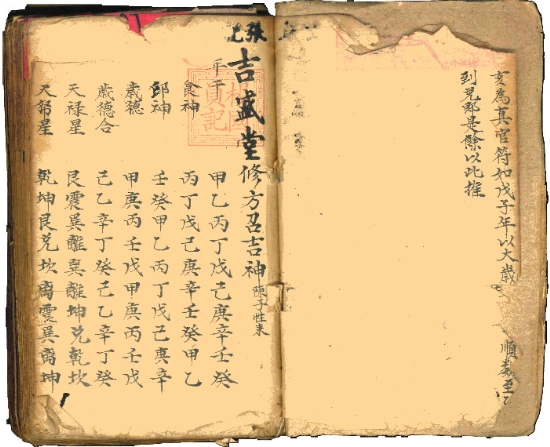 亥為真官符如戊子年以大歲順數至
到兌即是餘以此推
張
吉盛堂修方召吉神 陳子性
年干 甲乙丙丁戊己庚辛壬癸
食神 丙丁戊己庚辛壬癸甲乙
印神 壬癸甲乙丙丁戊己庚辛
歲德 甲庚丙壬戊甲庚丙壬戊
歲德合 己乙辛丁癸己乙辛丁癸
天祿星 艮震巽離巽離坤兌乾坎
天星 乾坤艮兌坎离震巽离坤